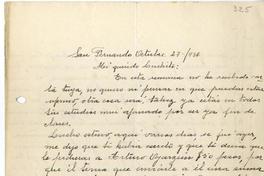 325
San Fernando Octubre 27/936
Mi querido Cuchito:
En esta semana no he recibido car
ta tuya, no quiero ni pensar en que puedas estar
enfermo, otra cosa será, tálvez ya estás en todos
tus estudios muy apurado por ser ya fin de
clases.
Lucho estuvo aquí varios dias se fué ayer,
me dijo que te había escrito y que te decía que
le pidieras a Arturo Oyarzún $50 pesos, por
que él tenía que enviarle a él cinco